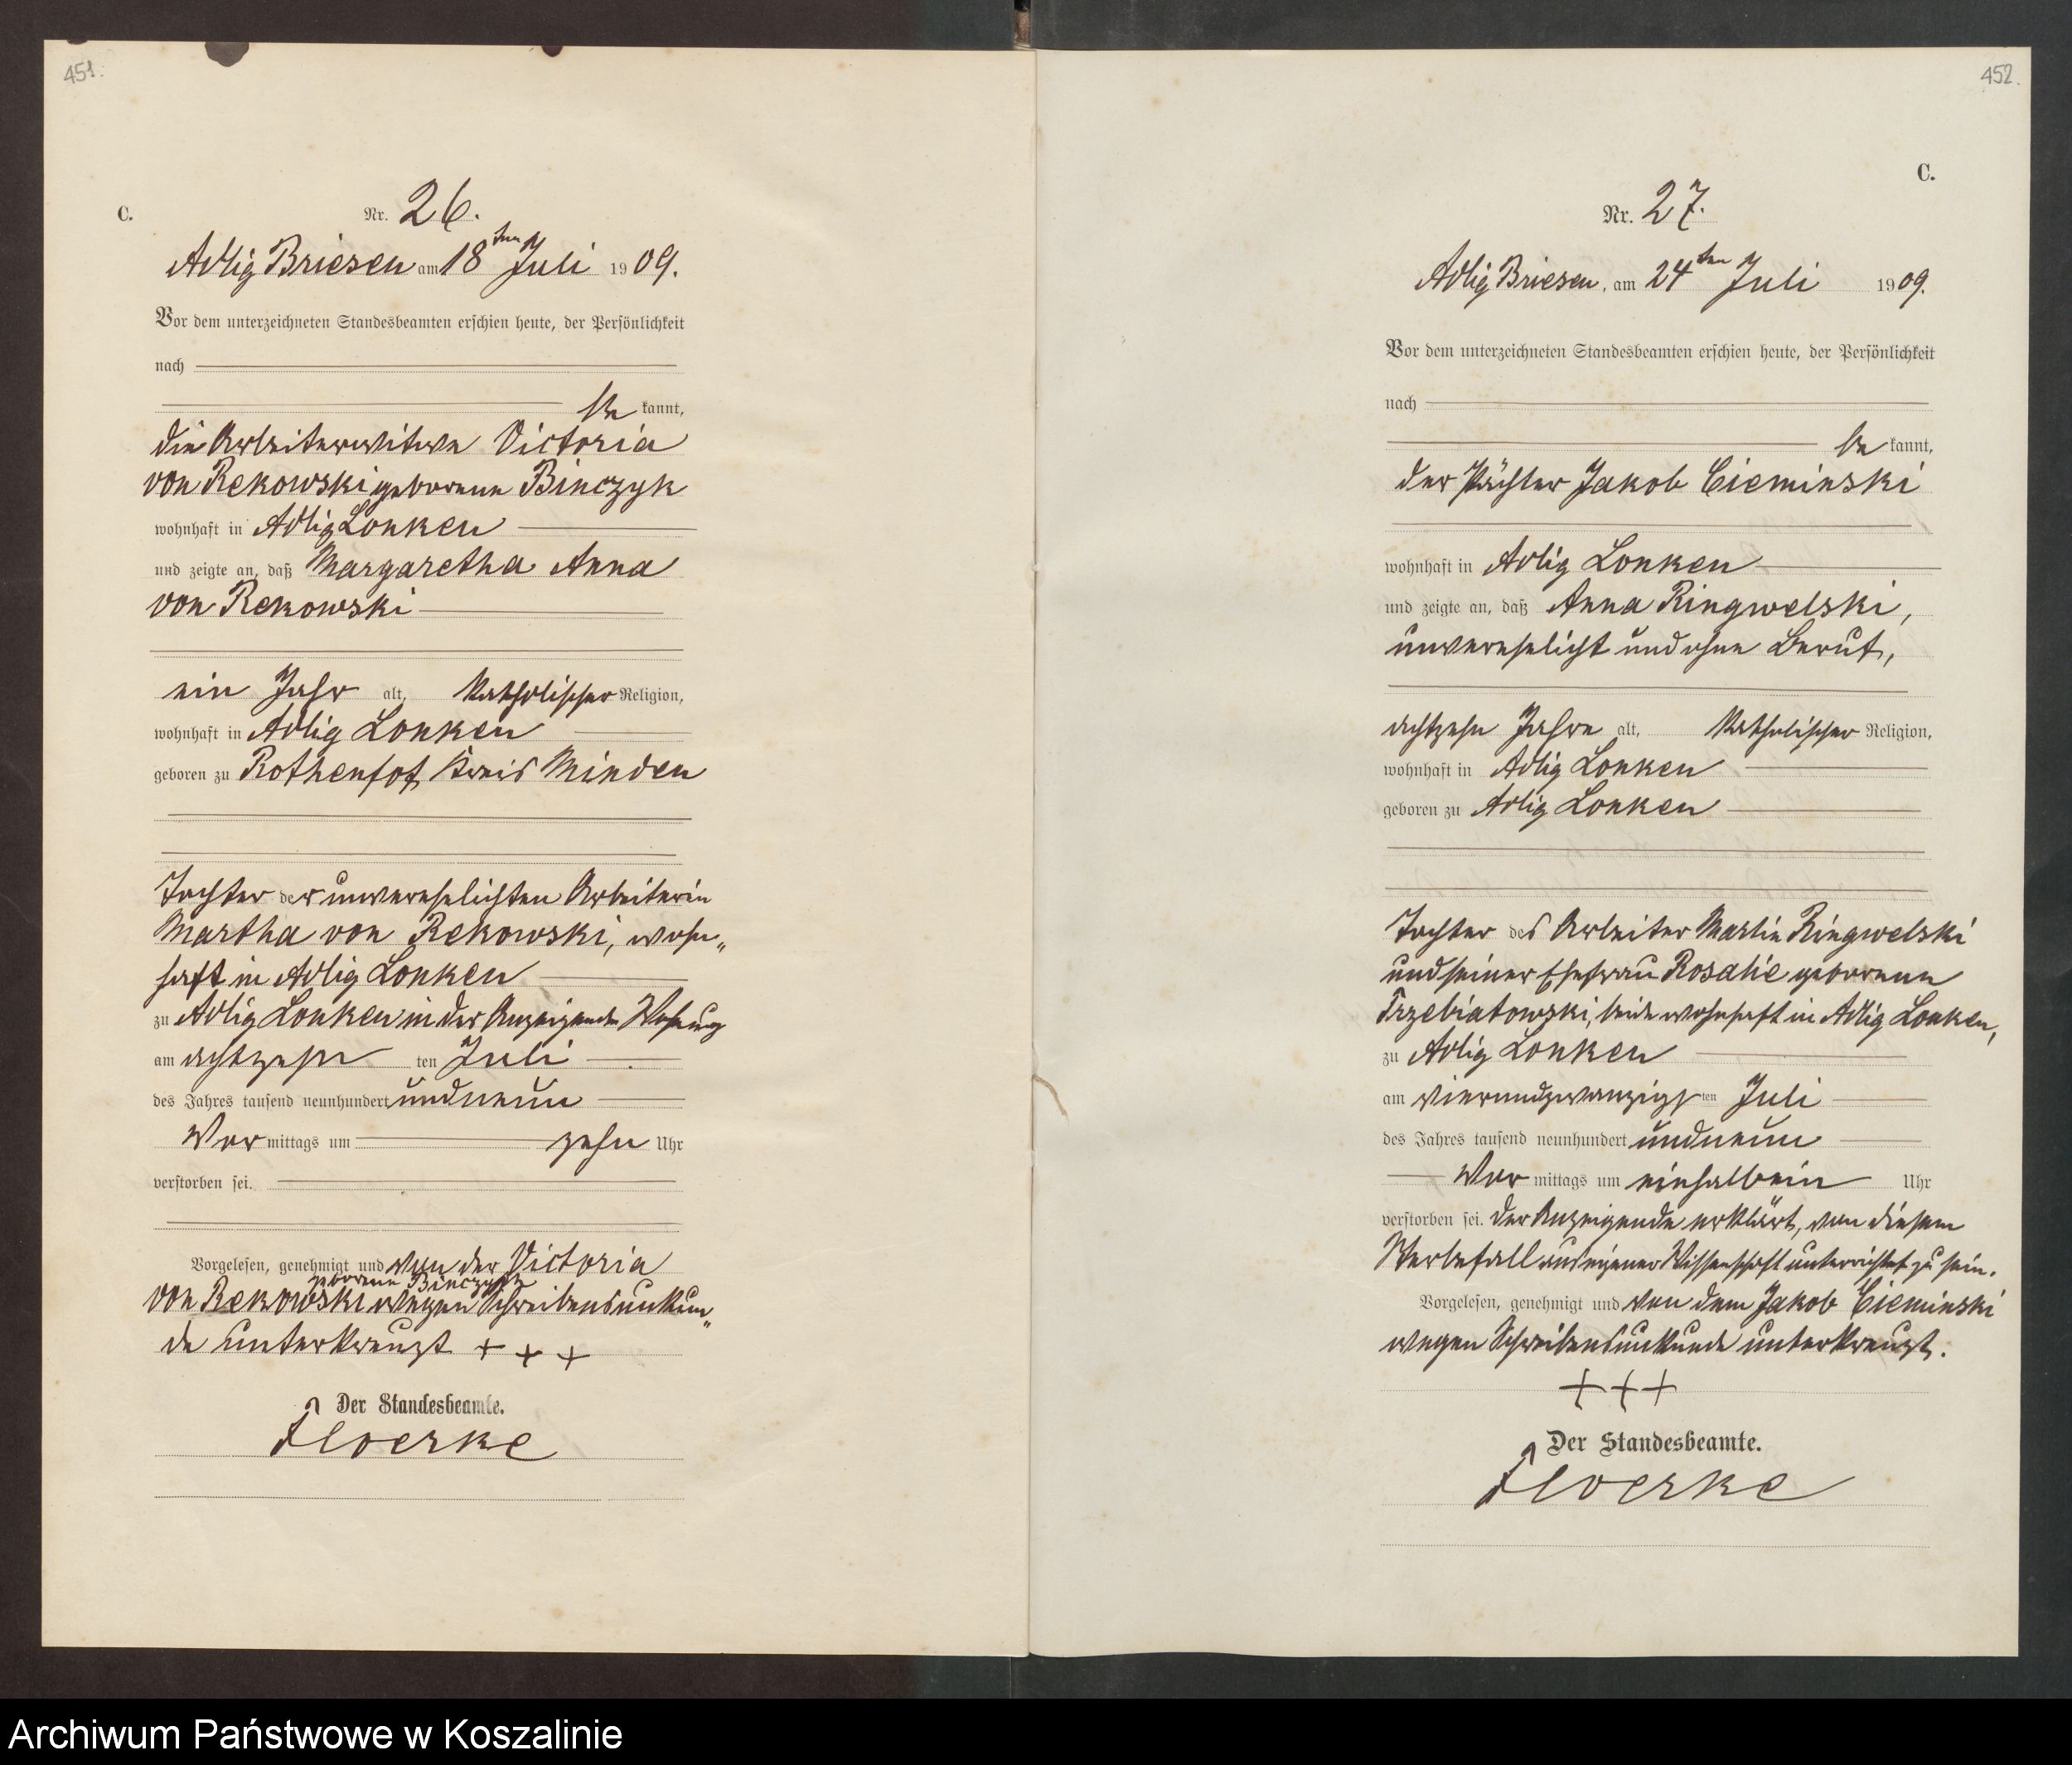 451.
C.
Nr. 26.
Adlig Briesen am 18ten Juli 1909.
Vor dem unterzeichneten Standesbeamten erschien heute, der Persönlichkeit
nach
be kannt,
die Arbeiterwitwe Victoria
von Rekowski geborene Binczyk
wohnhaft in Adlig Lonken
und zeigte an, daß Margaretha Anna
von Rekowski
ein Jahr alt, katholischer Religion,
wohnhaft in Adlig Lonken
geboren zu Rothenhof, Kreis Minden
Tochter der unverehelichten Arbeiterin
Martha von Rekowski, wohn„
haft in Adlig Lonken
zu Adlig Lonken in der Anzeigende Wohnung
am achtzehn ten Juli
des Jahres tausend neunhundert undneun
Vor mittags um zehn Uhr
verstorben sei.
Vorgelesen, genehmigt und von der Victoria
geborene Binczyk
von Rekowski wegen Schreibensunkun„
de unterkreuzt + + +
Der Standesbeamte.
452.
C.
Nr. 27.
Adlig Briesen, am 24ten Juli 1909.
Vor dem unterzeichneten Standesbeamten erschien heute, der Persönlichkeit
nach
be kannt,
der Pächter Jakob Cieminski
wohnhaft in Adlig Lonken
und zeigte an, daß Anna Ringwelski,
unverehelicht und ohne Beruf,
achtzehn Jahre alt, katholischer Religion,
wohnhaft in Adlig Lonken
geboren zu Adlig Lonken
Tochter des Arbeiter Martin Ringwelski
und seiner Ehefrau Rosalie geborene
Trzebiatowski, beide wohnhaft in Adlig Lonken,
zu Adlig Lonken
am vierundzwanzigsten Juli
des Jahres tausend neunhundert undneun
Vor mittags um einhalbein Uhr
verstorben sei. Der Anzeigende erklärt, von diesem
Sterbefall aus eigener Wissenschaft unterrichtet zu sein.
Vorgelesen, genehmigt und von dem Jakob Cieminski
wegen Schreibensunkunde unterkreuzt.
+++
Der Standesbeamte.
Archiwum Państwowe w Koszalinie